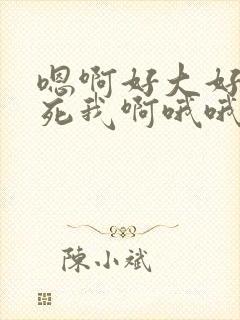 嗯啊好大好
死我啊哦哦
陳小斌